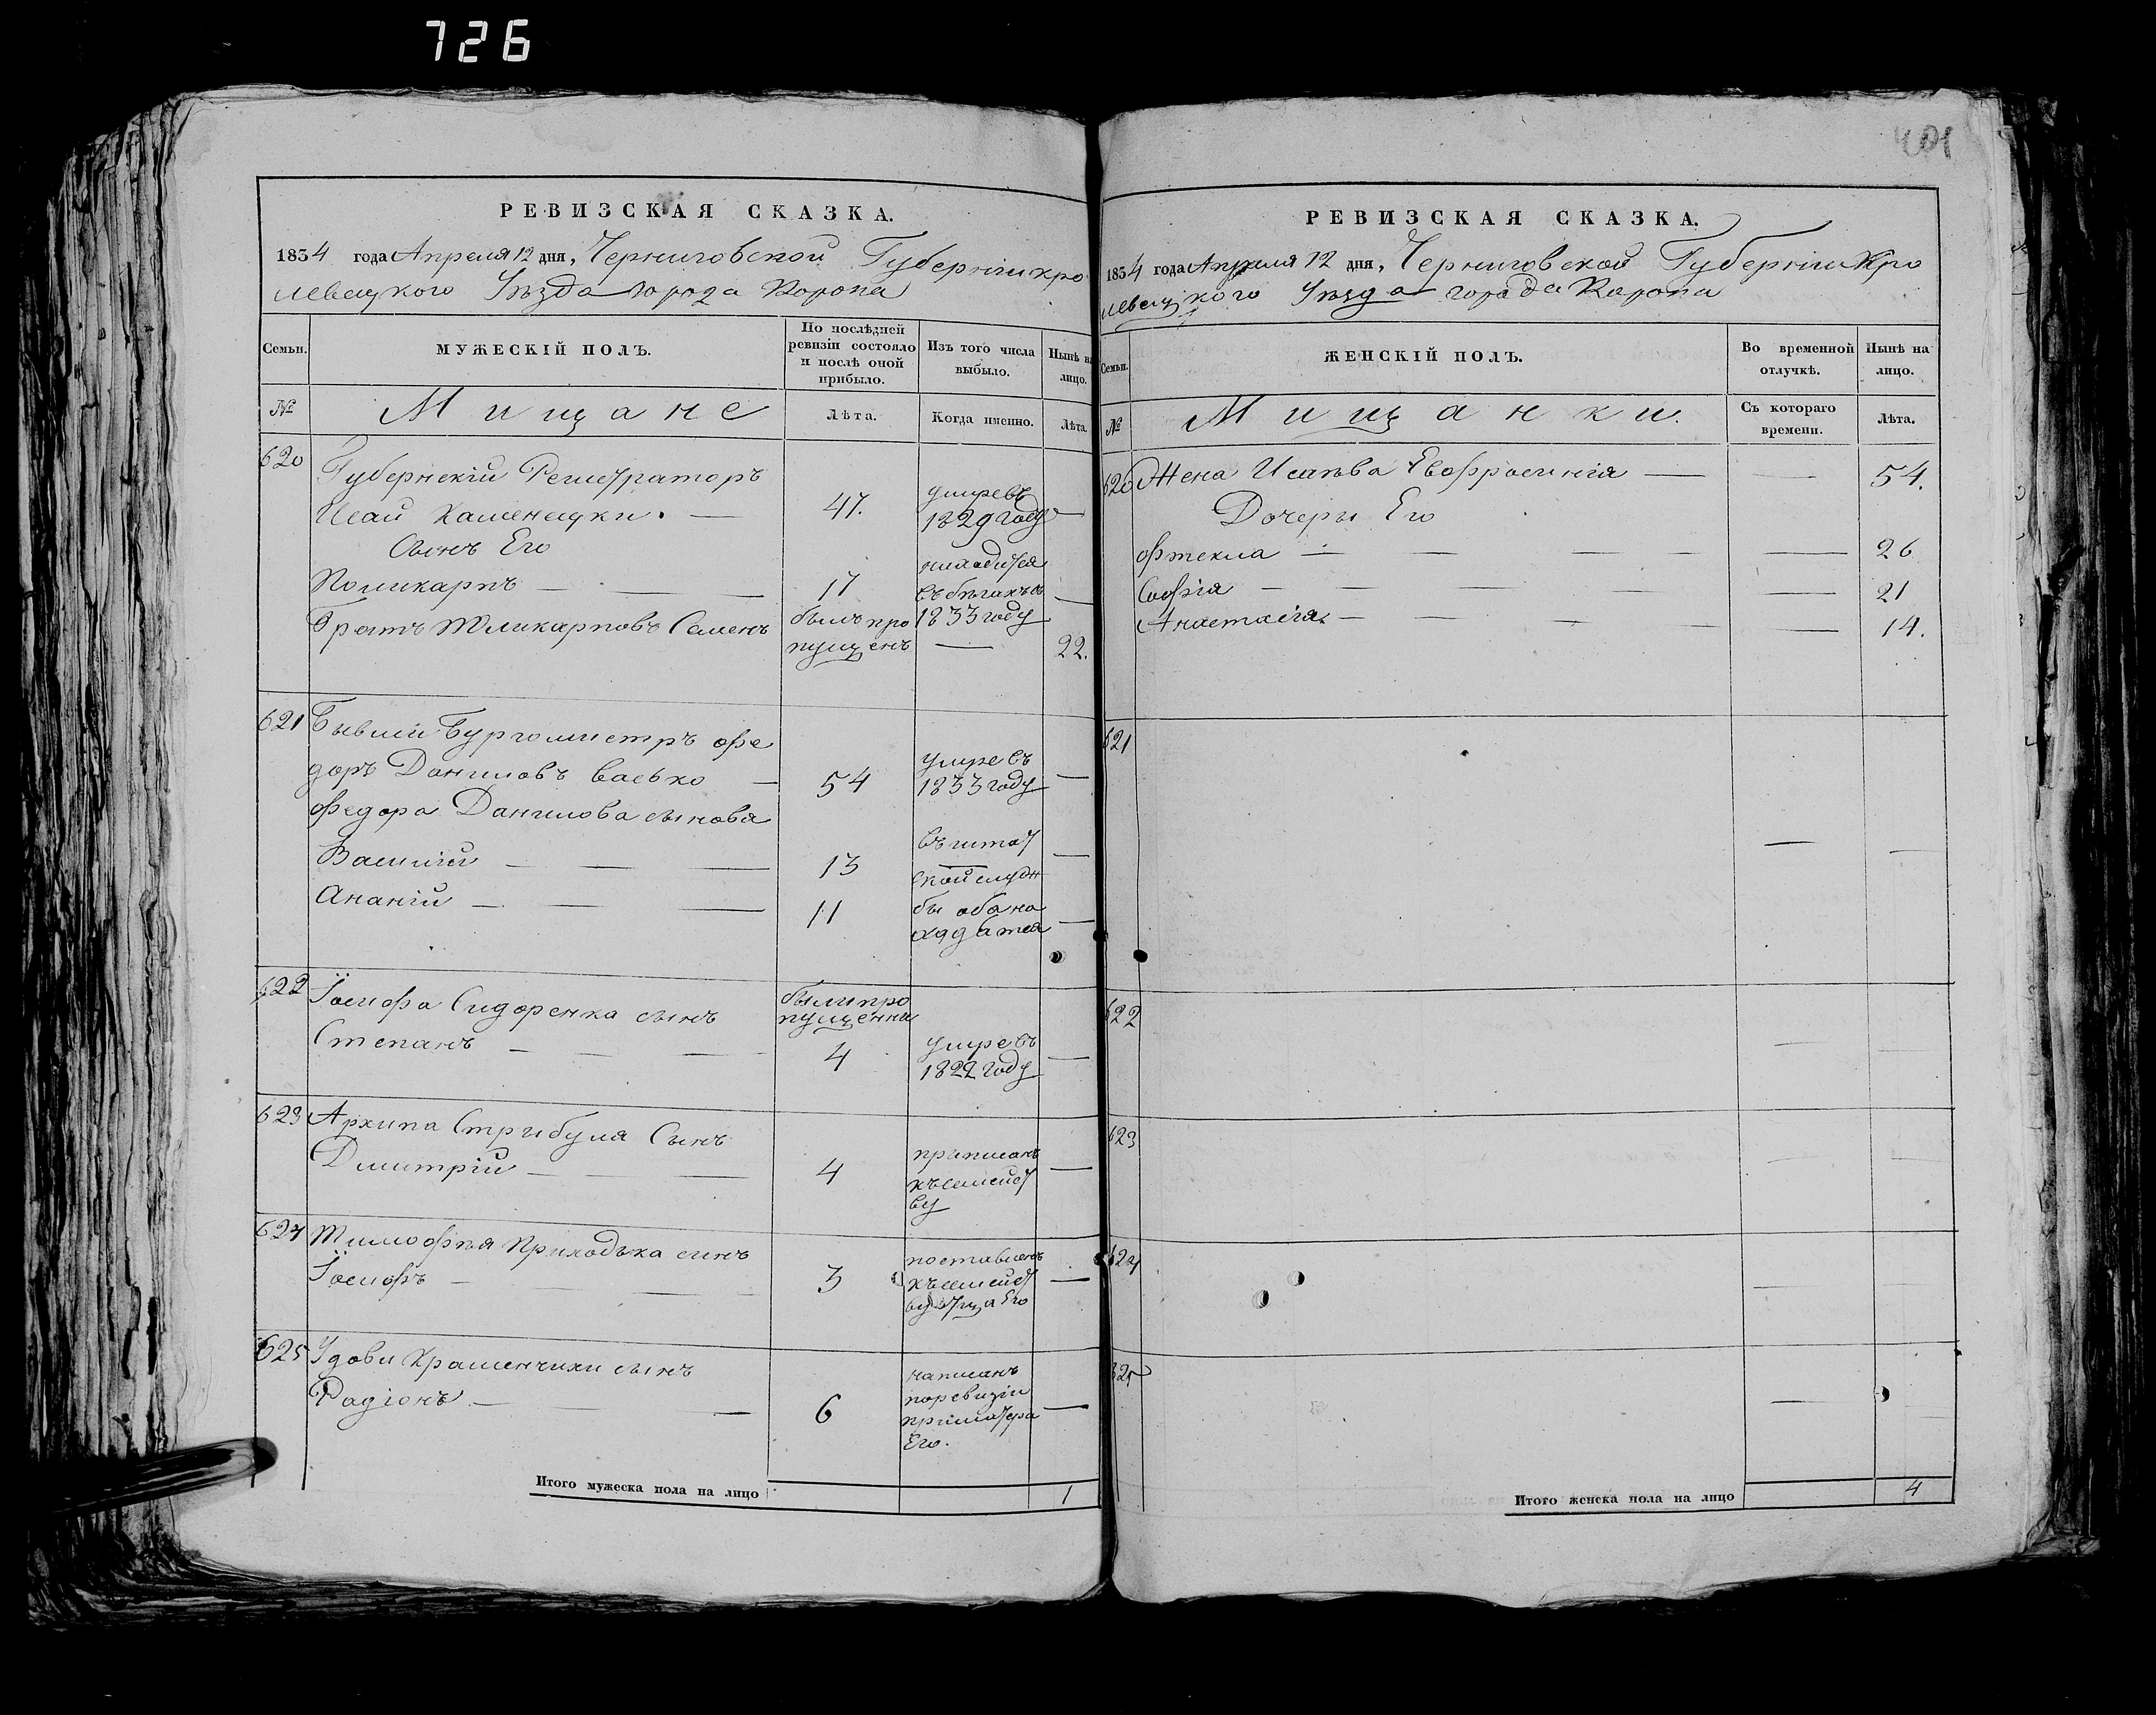 726
401
РЕВИЗСКАЯ СКАЗКА.
1834 года Апреля 12 дня, Черниговской Губерніи Кро
левецкого Уѣзда города Коропа
Семьи.
МУЖЕСКІЙ ПОЛЪ.
По послѣдней
ревизіи состояло
и послѣ оной
прибыло.
Изъ того числа
выбыло.
Нынѣ на
лицо.
№
Мищане
Лѣта.
Когда именно.
Лѣта.
620
Губернскій Регистраторъ
Исай Каменецки. —
47.
умре въ
1829 году —
Сынъ Его
Поликарпъ — — —
17
находится
въ бѣгахъ съ
1833 году —
Братъ Поликарповъ Семенъ
былъ про
пущенъ
—
22.
621
Бывшій Бургомистръ Фе
доръ Даниловъ Васько —
54
умре въ
1833 году —
Федора Данилова сынова
Василій — — —
13
въ штат
ской служ
—
Ананій — — —
11
бы оба на
ходятся
—
622
Іосифа Сидоренка сынъ
Степанъ — — —
были про
пущенни
4
умре въ
1822 году —
623
Архипа Стрибуля Сынъ
Дмитрій — —
4
приписанъ
къ семейст
ву
—
624
Тимофѣя Приходька синъ
Іосифъ — — —
3
поставленъ
къ семейст
ву отца Его
—
625
Удови Крашенчихи сынъ
Радіонъ — — —
6
написанъ
по ревизіи
при матери
Его.
—
Итого мужеска пола на лицо
1
РЕВИЗСКАЯ СКАЗКА.
1834 года Апреля 12 дня, Черниговской Губерніи Кро
левецкого Уѣзда города Коропа
Семьи.
ЖЕНСКІЙ ПОЛЪ.
Во временной
отлучкѣ.
Нынѣ на
лицо.
№
Мищанки.
Съ котораго
времени.
Лѣта.
620 Жена Исаѣва Евфросинія — — 54.
Дочеры Его
Фтекла — — — — — 26
Софія — — — — — 21
Анастасія — — — — — 14.
621
— —
622
— —
623
— —
624
— —
625
— —
Итого женска пола на лицо
4